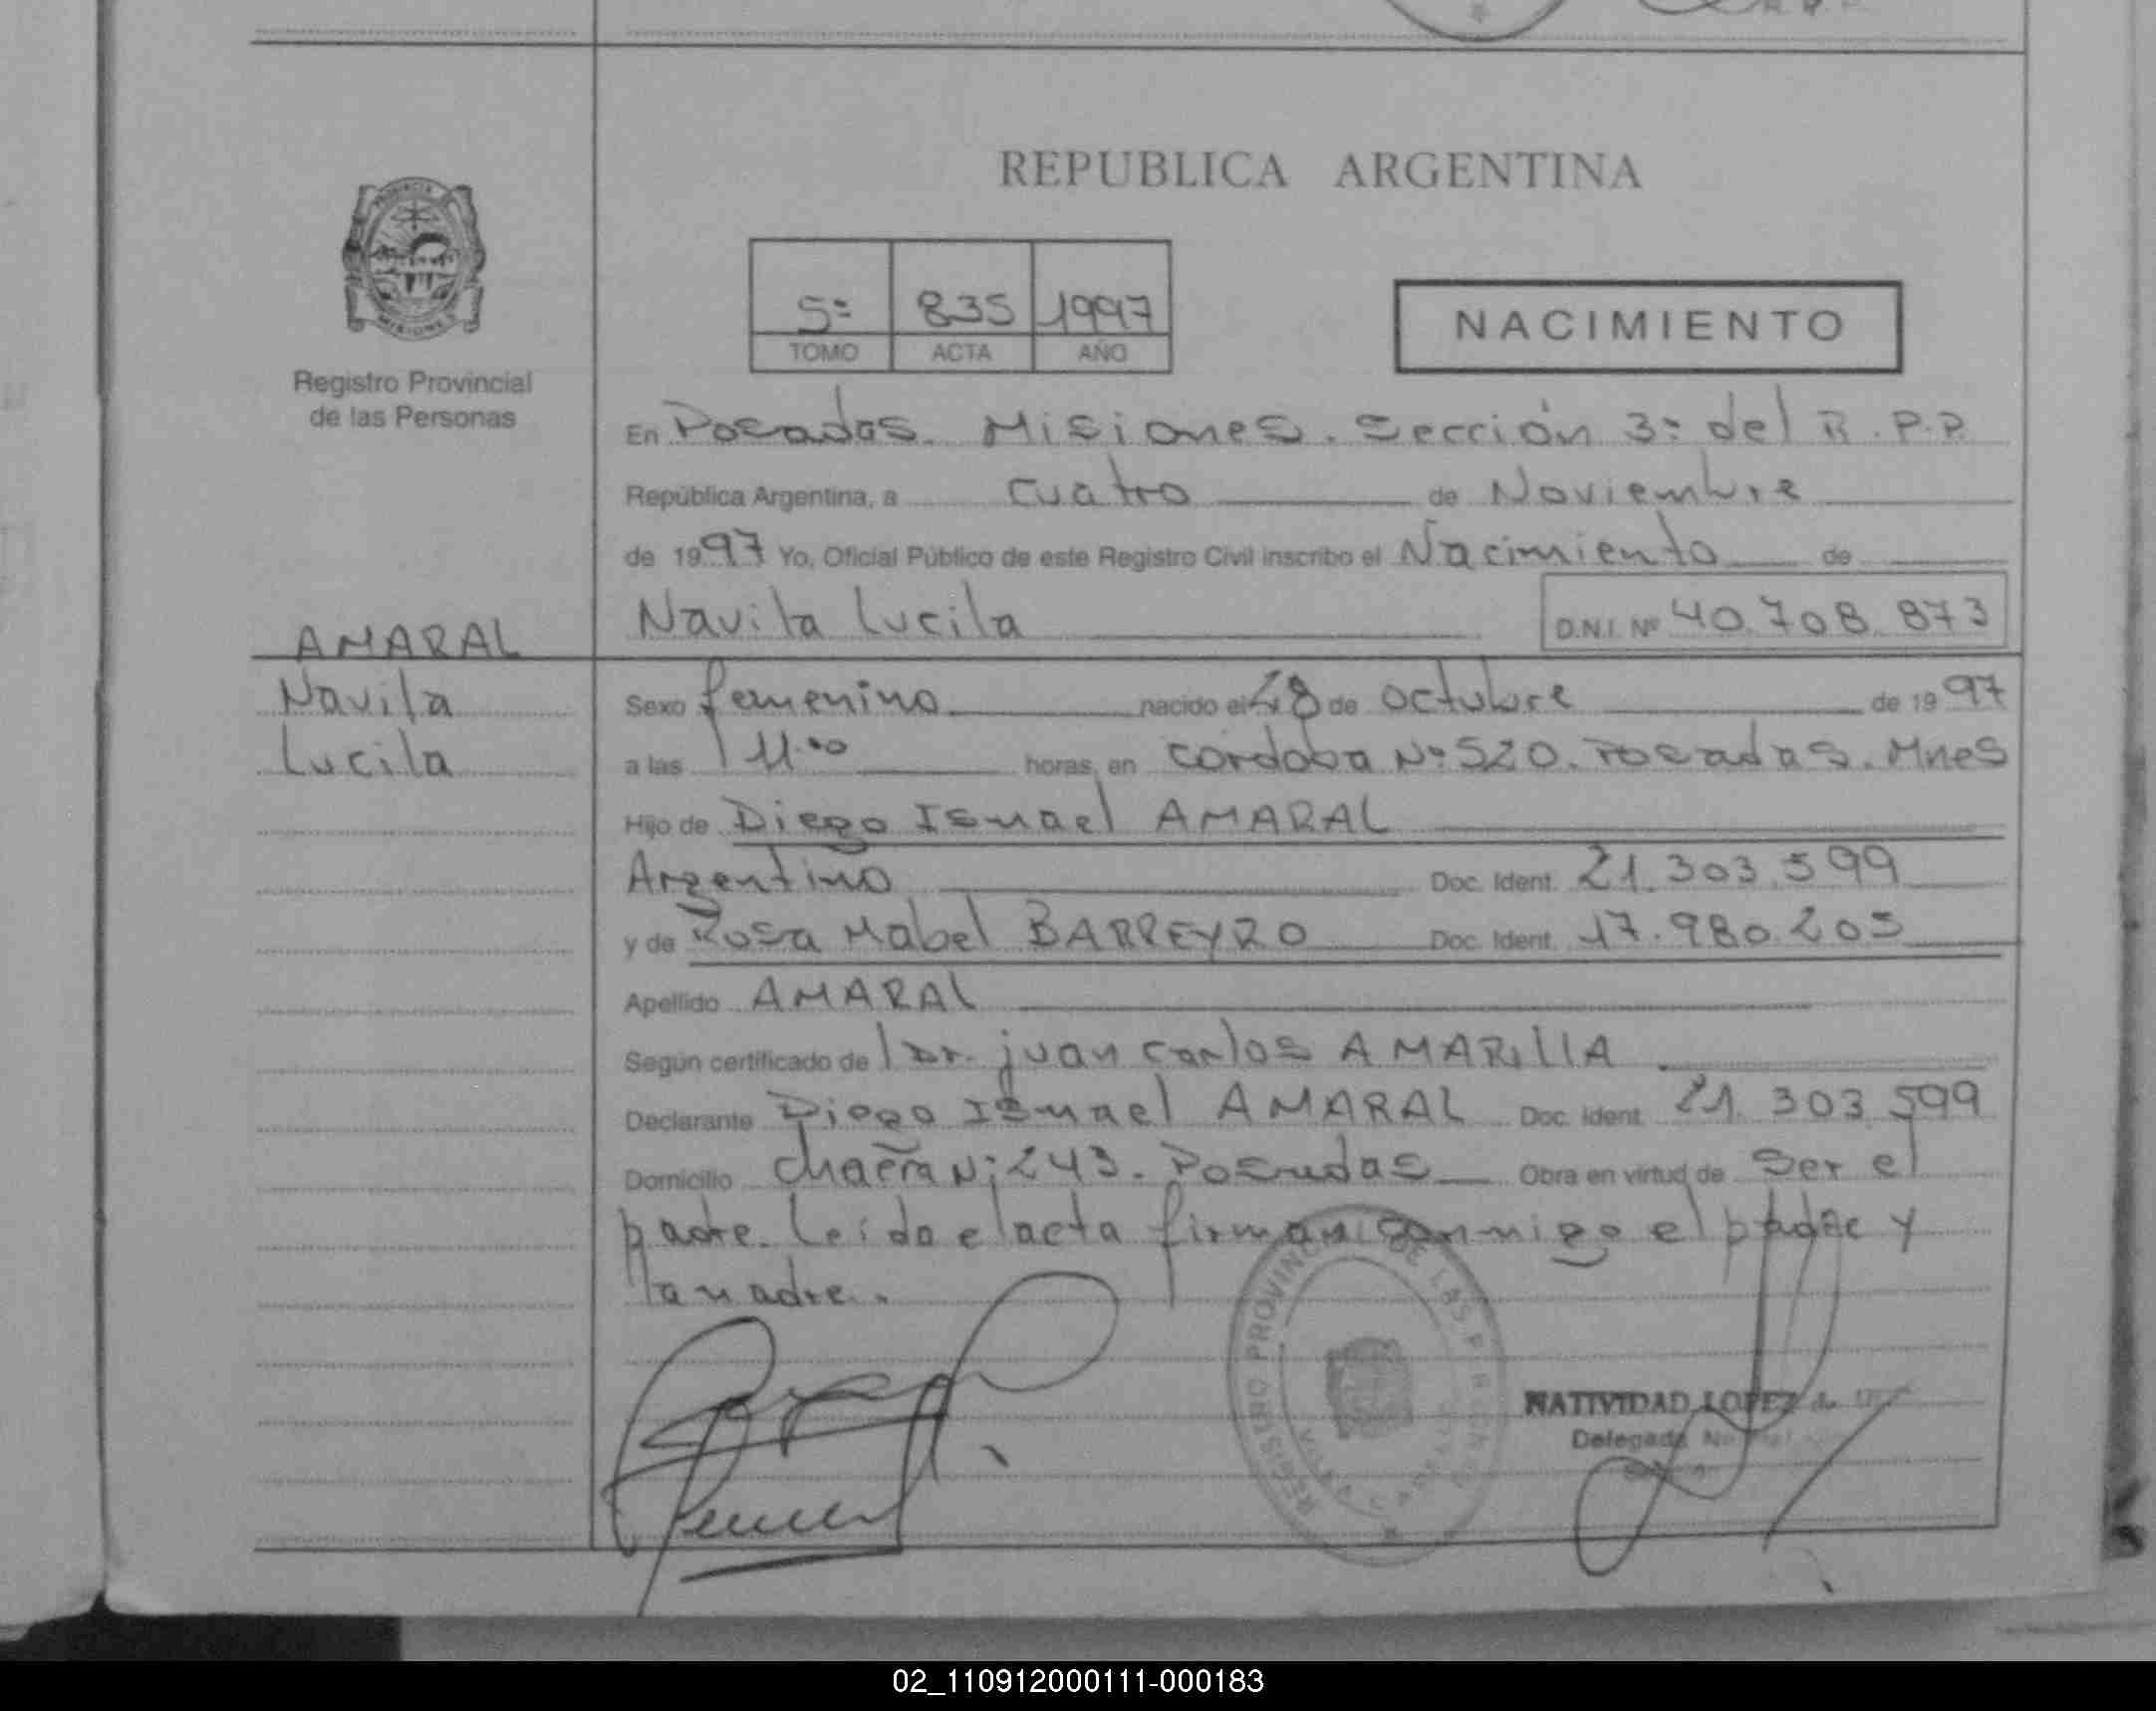 REPUBLICA ARGENTINA
PROVINCIA
MISIONES
Registro Provincial
de las Personas
5º 835 1997
TOMO ACTA AÑO
NACIMIENTO
En Posadas. Misiones. Sección 3º del R.P.P.
República Argentina, a cuatro de Noviembre
de 1997 Yo, Oficial Público de este Registro Civil inscribo el Nacimiento de
Navila Lucila D.N.I. Nº 40.708.873
AMARAL
Navila
Lucila
Sexo femenino nacido el 28 de octubre de 1997
a las 11.00 horas, en Córdoba Nº 520. Posadas. Mnes
Hijo de Diego Ismael AMARAL
Argentino Doc. Ident. 21.303.599
y de Rosa Mabel BARREYRO Doc. Ident. 17.980.205
Apellido AMARAL
Según certificado de Dr. Juan Carlos AMARILLA
Declarante Diego Ismael AMARAL Doc. Ident. 21.303.599
Domicilio Chacra Nº 243. Posadas Obra en virtud de Ser el
padre. Leída el acta firman conmigo el padre y
la madre.
REGISTRO PROVINCIAL DE LAS PERSONAS
NATIVIDAD LOPEZ de
Delegada
02_110912000111-000183